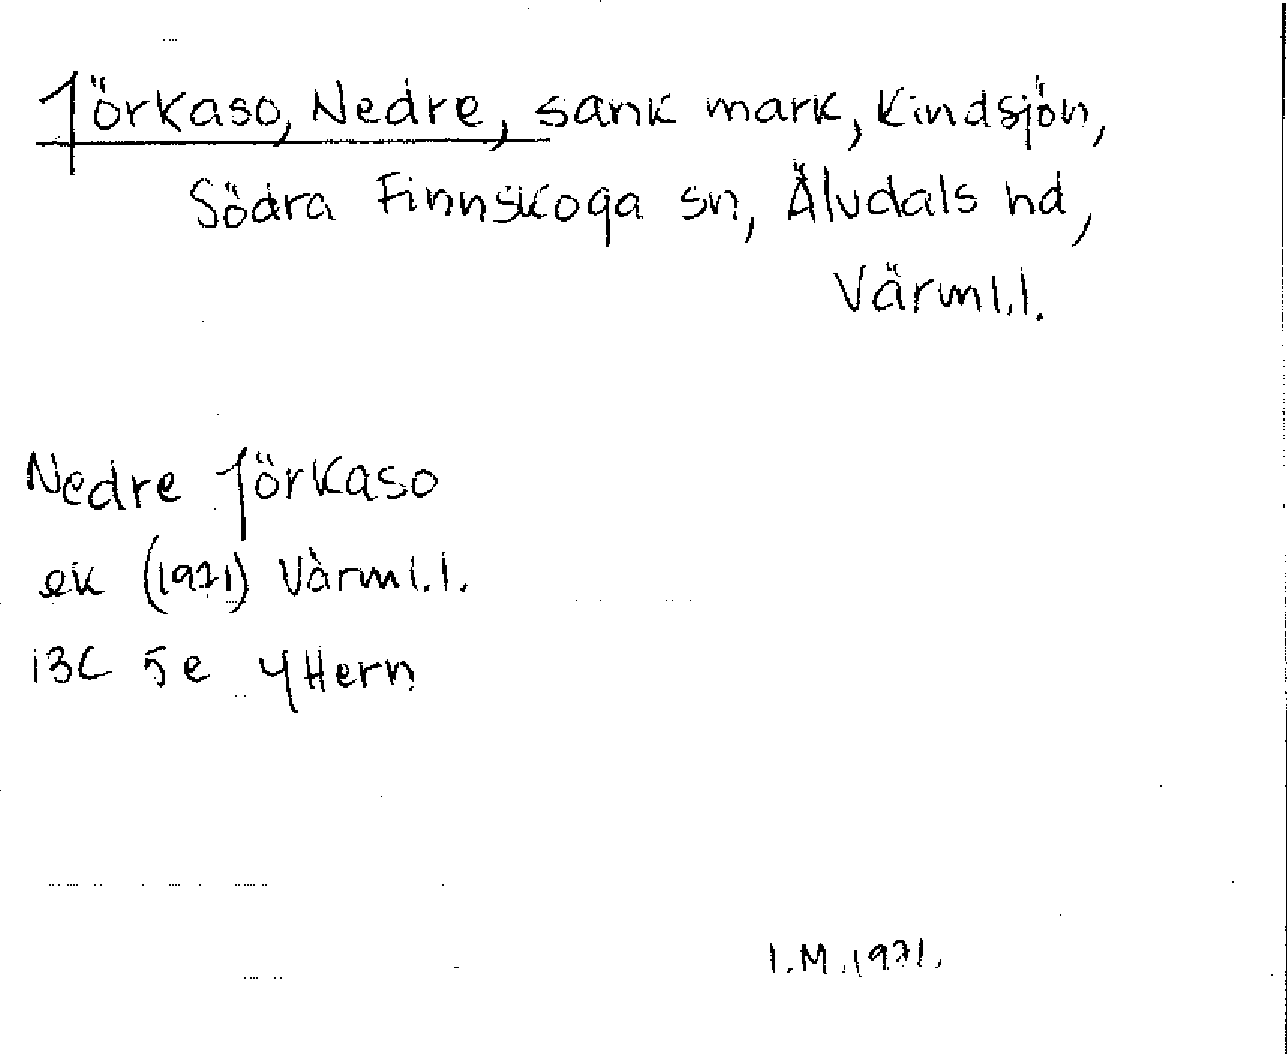 Jörkaso, Nedre, sank mark, Kindsjön,
Södra Finnskoga sn, Älvdals hd,
Värml.l.
Nedre Jörkaso
ek (1971) Värml.l.
13C 5e YHern
I.M.1971.